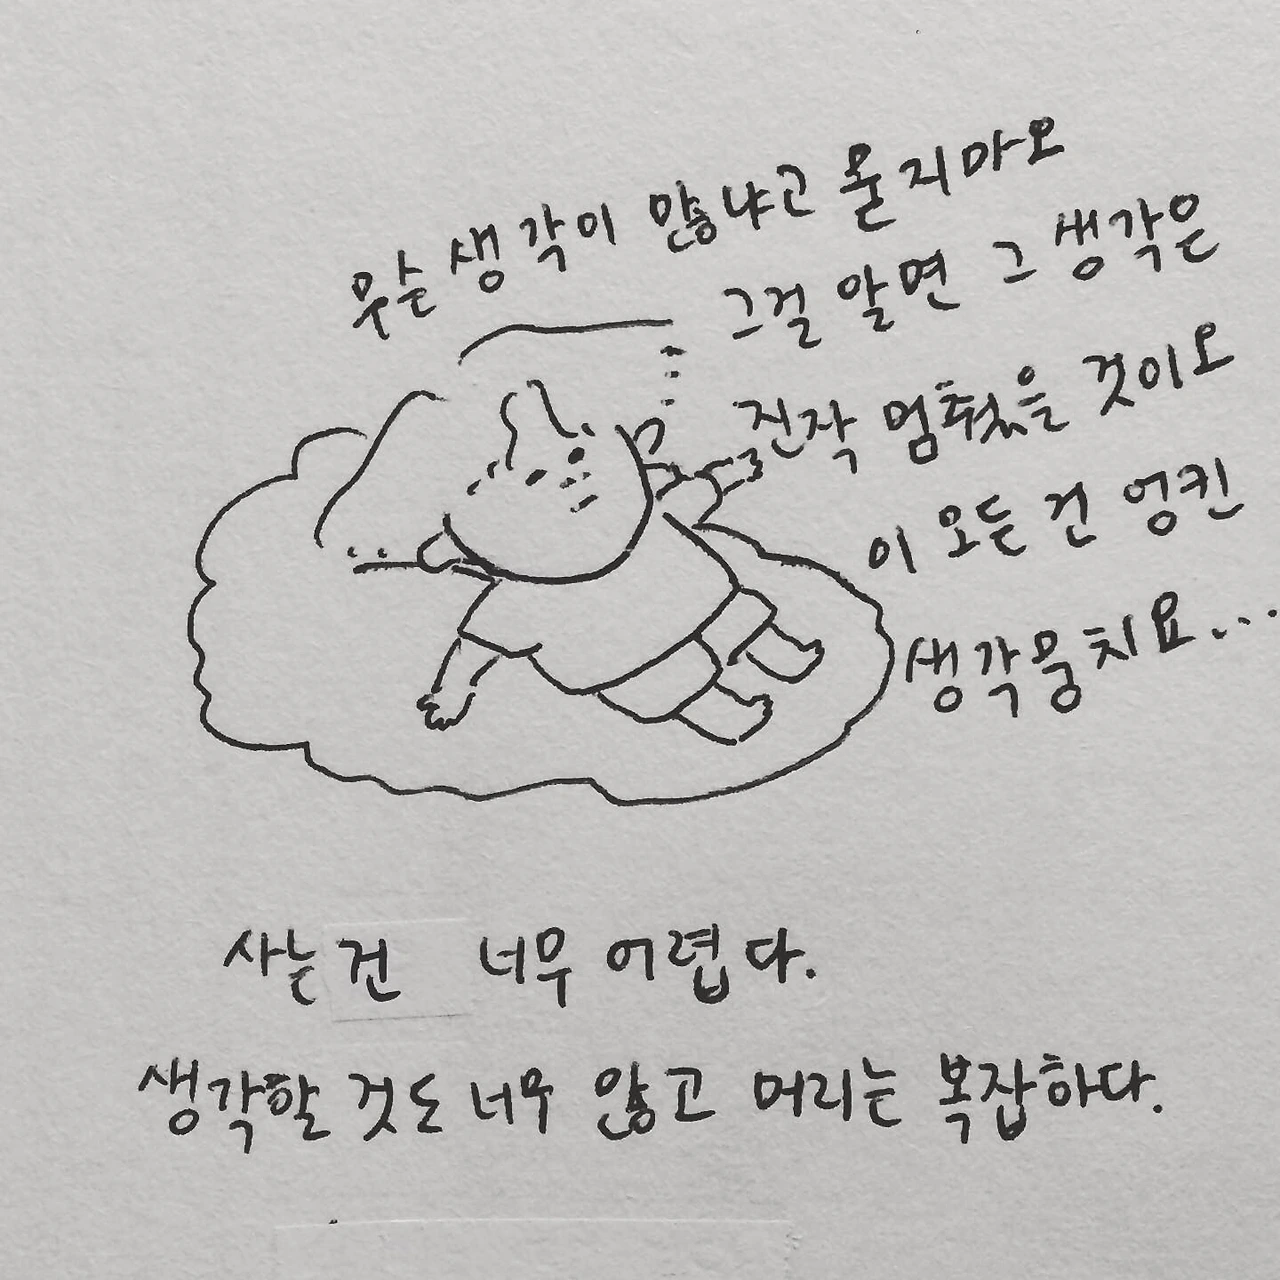 무슨 생각이 많냐고 묻지마오
그걸 알면 그 생각은
진작 멈췄을 것이오
이 모든 건 엉킨
생각뭉치요...
사는건 너무 어렵다.
생각할 것도 너무 많고 머리는 복잡하다.